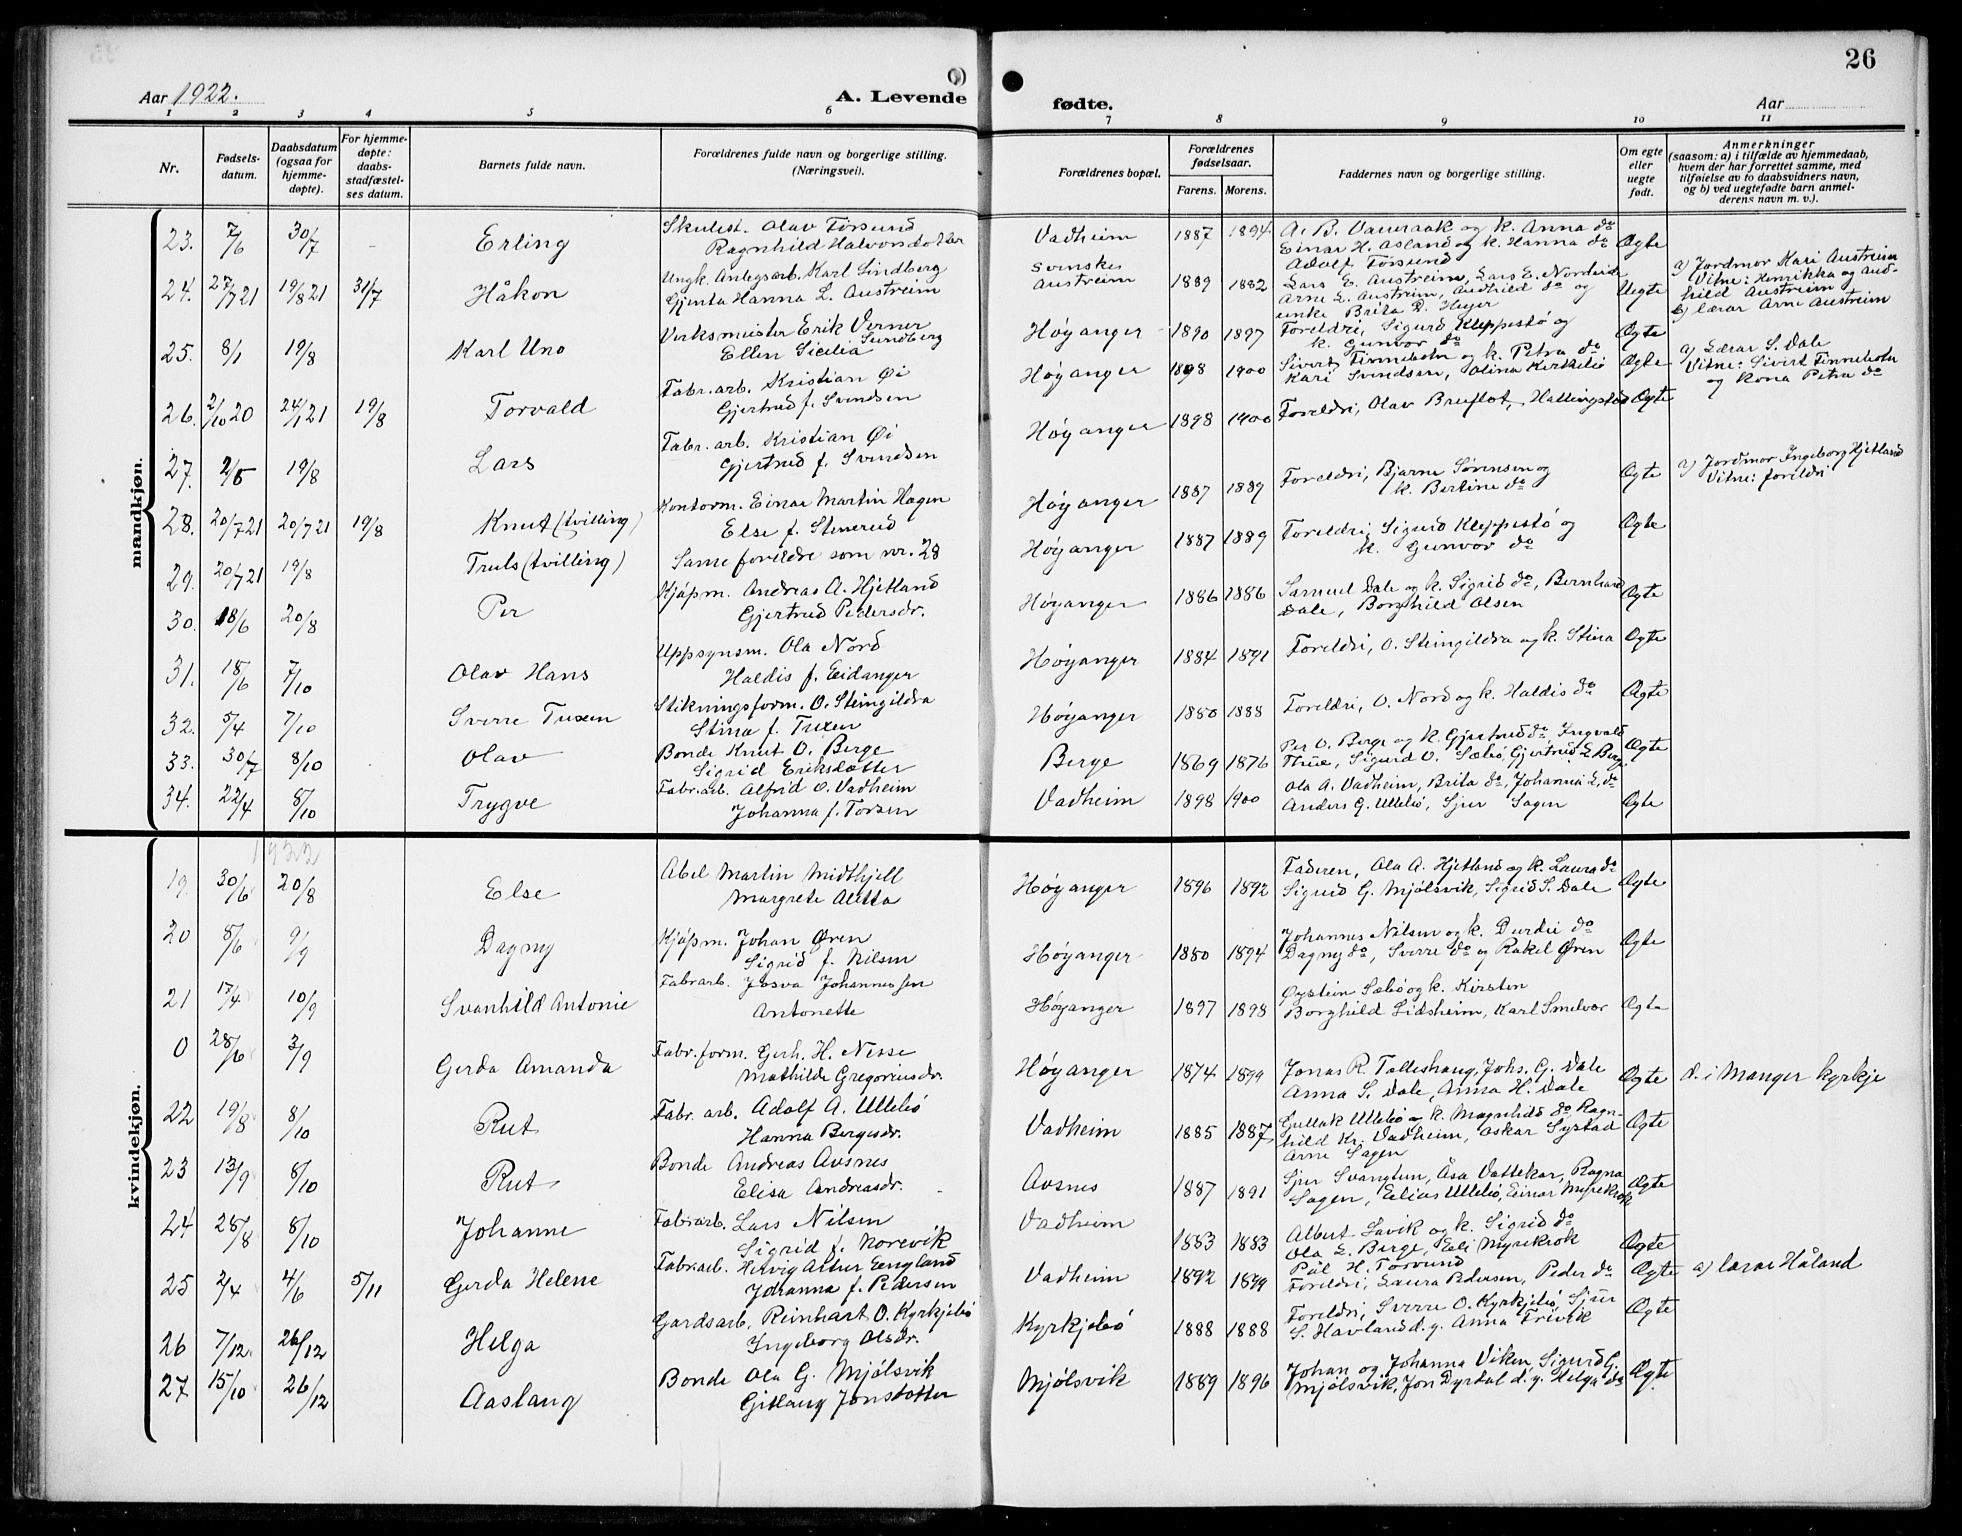 26
Aar 1922.
A. Levende fødte.
Aar
1 2 3 4 5 6 7 8 9 10 11
Nr.
Fødsels-
datum.
Daabsdatum
(ogsaa for
hjemme-
døpte).
For hjemme-
døpte:
daabs-
stadfæstel-
ses datum.
Barnets fulde navn.
Forældrenes fulde navn og borgerlige stilling.
(Næringsvei).
Forældrenes bopæl.
Forældrenes
fødselsaar.
Farens. Morens.
Faddernes navn og borgerlige stilling.
Om egte
eller
uegte
født.
Anmerkninger
(saasom: a) i tilfælde av hjemmedaab,
hvem der har forrettet samme, med
tilføielse av to daabsvidners navn,
og b) ved uegtefødte barn anmel-
derens navn m. v.).
mandkjøn.
23. 7/6 30/7 - Erling Skulest. Olav Torsund
Ragnhild Halvorsdotter
Vadheim 1887 1894 A. B. Vaeraak og k. Anna do
Einar H. Åsland og k. Hanna do
Adolf Torsund
Ægte
24. 27/7 21 19/8 21 31/7 Håkon Ungk. Anlegsarb. Karl Lindberg
Gjenta Hanna L. Austreim
Svenske
Austreim 1889 1882 Lars E. Austreim, Lars E. Nordeide
Arne L. Austreim, Audhild do og
enke Brita D. Høyer
Uegte
a) Jordmor Kari Austreim
Vitne: Henrikka og Aud-
hild Austreim
b) lærar Arne Austreim
25. 8/1 19/8 Karl Uno Verksmeister Erik Verner Sundberg
Ellen Sicilia
Høyanger 1890 1897 Foreldri, Sigurd Kleppestø og
k. Gunvor do
Ægte
26. 2/10 20 24/1 21 19/8 Torvald Fabr. arb. Kristian Øi
Gjertrud f. Svendsen
Høyanger 1898 1900 Sivert Finnebotn og k. Petra do
Kari Svendsen, Olina Kirkelië
Ægte
a) Lærar S. Dale
Vitne: Sivert Finnebotn
og kona Petra do
27. 2/5 19/8 Lars Fabr. arb. Kristian Øi
Gjertrud f. Svendsen
Høyanger 1898 1900 Foreldri, Olav Bruflot, Hallingstad Ægte
28. 20/7 21 20/7 21 19/8 Knut (tvilling) Kontorm. Einar Martin Hagen
Else f. Stenerud
Høyanger 1887 1889 Foreldri, Bjarne Sørensen og
k. Bertine do
Ægte
a) Jordmor Ingeborg Hjetland
Vitne: foreldri
29. 20/7 21 19/8 Truls (tvilling) Same foreldre som nr. 28
Høyanger 1887 1889 Foreldri, Sigurd Kleppestø og
k. Gunvor do
Ægte
30. 18/6 20/8 Per Kjøpm. Andreas A. Hjetland
Gjertrud Pedersdr.
Høyanger 1886 1886 Samuel Dale og k. Sigrid do, Bernhard
Dale, Borghild Olsen
Ægte
31. 18/6 7/10 Olav Hans Uppsynsm. Ola Nord
Haldis f. Eidanger
Høyanger 1884 1891 Foreldri, O. Steingildra og k. Stina Ægte
32. 5/4 7/10 Sverre Tuxen Stikningsform. O. Steingildra
Stina f. Tuxen
Høyanger 1880 1888 Foreldri, O. Nord og k. Haldis do Ægte
33. 30/7 8/10 Olav Bonde Knut O. Berge
Sigrid Eriksdotter
Berge 1869 1876 Per O. Berge og k. Gjertrud do, Ingvald
Thue, Sigurd O. Sæbø, Gjertrud L Berge
Ægte
34. 22/4 8/10 Trygve Fabr. arb. Alfrid O. Vadheim
Johanna f. Torsen
Vadheim 1898 1900 Ola A. Vadheim, Brita do, Johanna L. do
Anders G. Ullebø, Sjur Sagen
Ægte
kvindekjøn.
1922
19. 30/6 20/8 Else Abel Martin Midthjell
Margrete Aletta
Høyanger 1896 1892 Faderen, Ola A. Hjetland og k. Laura do
Sigurd G. Mjølsvik, Sigrid S. Dale
Ægte
20 8/6 9/9 Dagny Kjøpm. Johan Øren
Sigrid f. Nilsen
Høyanger 1880 1894 Johannes Nilsen og k. Durdei do
Dagny do, Sverre do og Rakel Øren
Ægte
21 17/4 10/9 Svanhild Antonie Fabrarb. Josva Johannessen
Antonette
Høyanger 1897 1898 Øystein Sæbø og k. Kirsten
Borghild Lidsheim, Karl Smelvær
Ægte
0 28/6 3/9 Gerda Amanda Fabr. form. Gerh. H. Nesse
Mathilde Gregoriusdr.
Høyanger 1874 1899 Jonas R. Tolleshaug, Johs. G. Dale
Anna S. Dale, Anna H. Dale
Ægte d. i Manger kyrkje
22 19/8 8/10 Rut Fabr. arb. Adolf A. Ullebø
Hanna Bergesdr.
Vadheim 1885 1887 Gullak Ullebø og k. Magnhild do Ragn-
hild Kr. Vadheim, Oskar Systad
Arne Sagen
Ægte
23 13/9 8/10 Rut Bonde Andreas Avsnes
Elisa Andreasdr.
Avsnes 1887 1891 Sjur Svangtun, Åsa Vattekar, Ragna
Sagen, Elias Ullebø, Einar Myrekrok
Ægte
24 28/8 8/10 Johanne Fabrarb. Lars Nilsen
Sigrid f. Norevik
Vadheim 1883 1883 Albert Lavik og k. Sigrid do
Ola L. Berge, Eli Myrekrok
Pål H. Torsund
Ægte
25 2/4 4/6 5/11 Gerda Helene Fabrarb. Hitvig Artur England
Johanna f. Pedersen
Vadheim 1892 1899 Foreldri, Laura Pedersen, Peder do Ægte a) lærar Håland
26 7/12 26/12 Helga Gardsarb. Reinhart O. Kyrkjebø
Ingeborg Olsdr.
Kyrkjebø 1888 1888 Foreldri, Sverre O. Kyrkjebø, Sjur
S. Havland d. y. Anna Trivik
Ægte
27 15/10 26/12 Aaslaug Bonde Ola G. Mjølsvik
Gitlaug Jonsdotter
Mjølsvik 1889 1896 Johan og Johanna Viken, Sigurd G.
Mjølsvik, Jon Dyrdal d. y. Helga do
Ægte